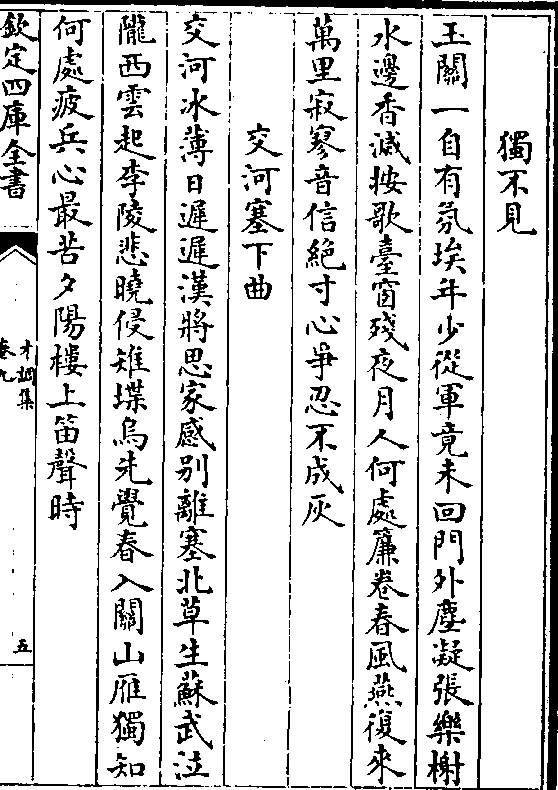 獨不見
玉關一自有氛埃年少從軍竟未回門外塵凝張樂榭
水邊香滅按歌臺窗殘夜月人何處簾卷春風燕復來
萬里寂寥音信絕寸心爭忍不成灰
交河塞下曲
交河冰薄日遲遲漢將思家感别離塞北草生蘇武泣
隴西雲起李陵悲曉侵雉堞烏先覺春入關山雁獨知
何處疲兵心最苦夕陽樓上笛聲時
欽定四庫全書
才調集
卷九
五